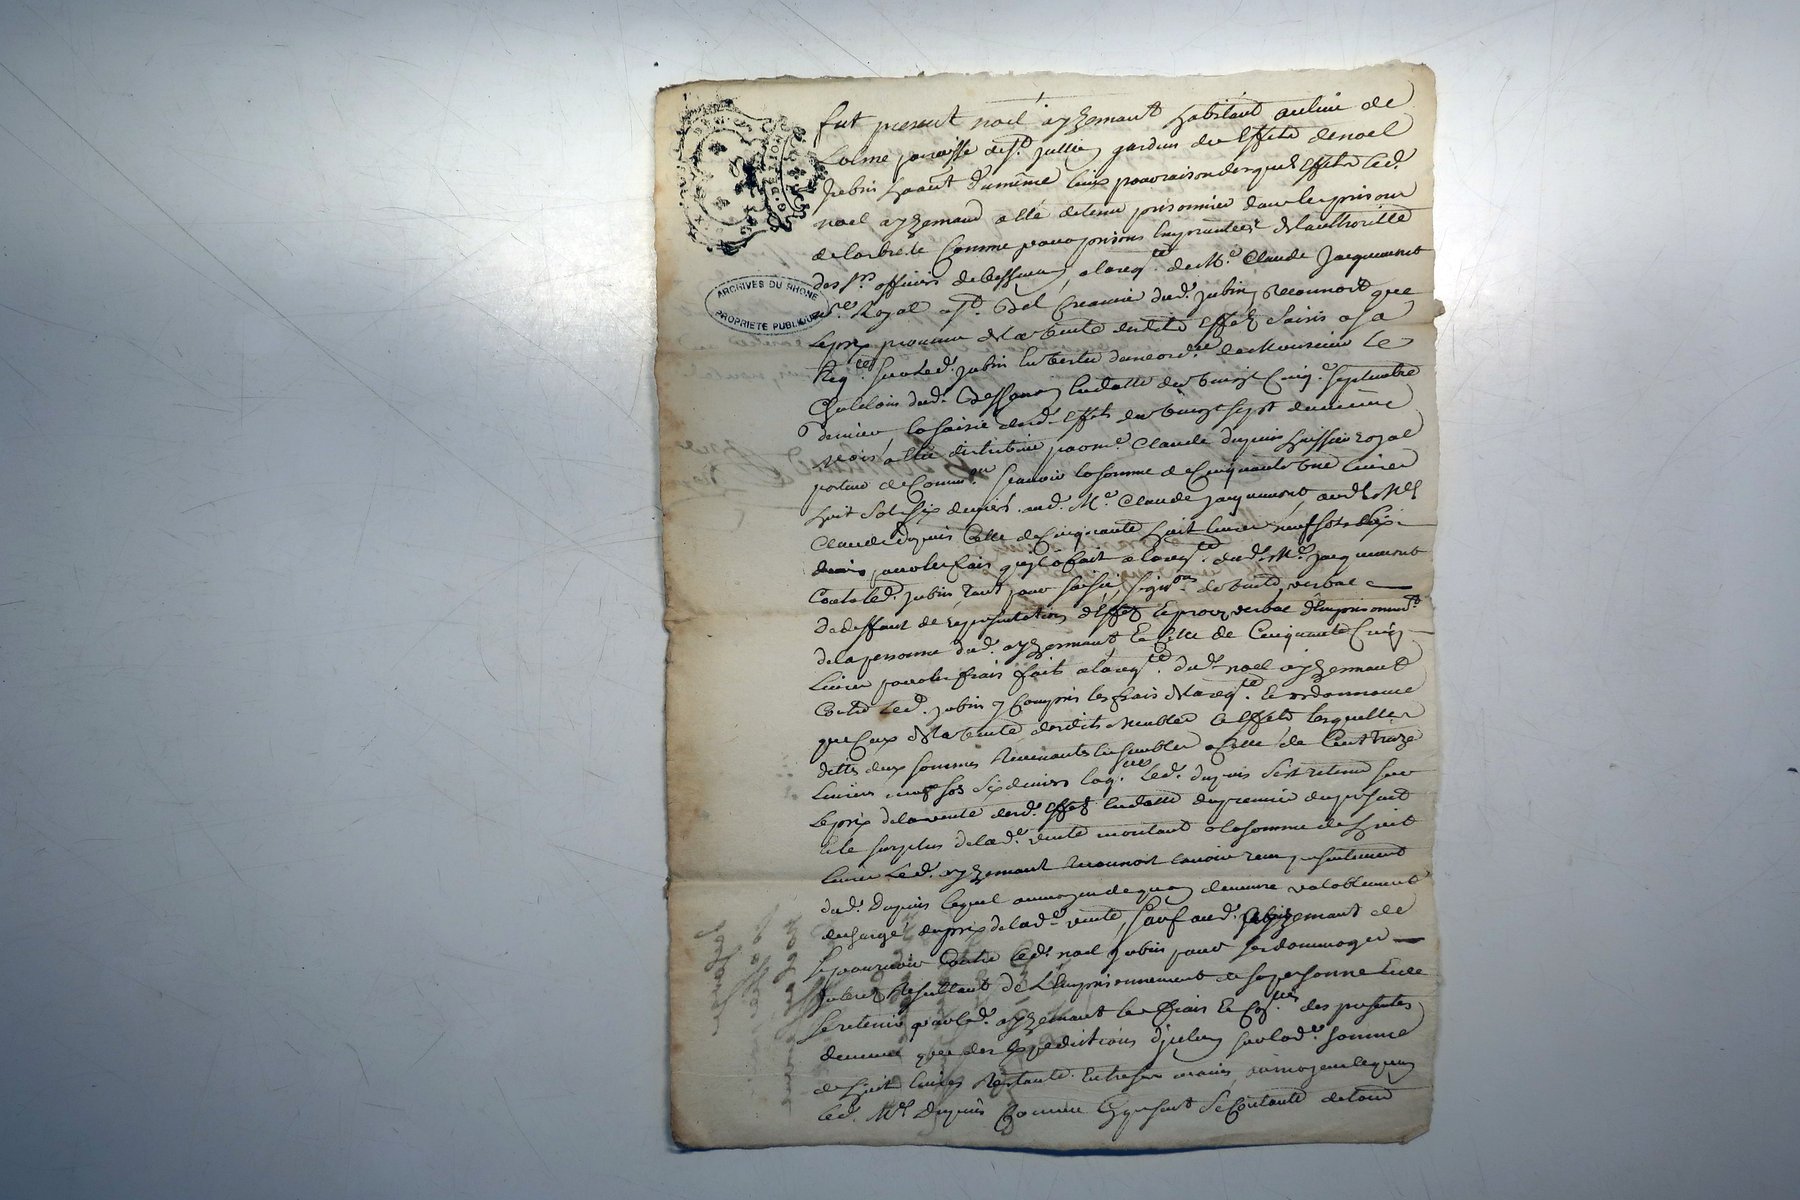 ARCHIVES DU RHONE
PROPRIETE PUBLIQUE
fut present noël ayzemant habitant au lieu de
Lolme paroisse de st. jullien gardien des Effets de noel
jubin habitant dumême lieu pour raison desquels Effets led.
noel ayzemand a été detenu prisonnier dans les prisons
de larbrele Comme prisons Empruntées de lauthorité
des srs. officiers de bessenay, a la reqte. de Me. Claude Jacquemont
Royal Creancier dud. jubin, Reconnoit que
le prix provenu de la vente desdits Effets saisis a sa
Reqte. sur led. jubin en vertu dune ordce. de Monsieur le
Chatelain dud. bessenay en datte du vingt Cinq septembre
dernier, la saisie desd. Effets du vingt sept du même
mois a été distribué par me. Claude dupuis huissier royal
porteur de Comm.on scavoir la somme de Cinquante une livres
huit sols six deniers aud. Me. Claude jacquemont, aud. Me.
Claude dupuis Celle de Cinquante huit livres neuf sols Six
deniers pour les frais quil a fait a la reqte. dud. Me. jacquemont
Contre led. jubin, tant pour saisie, de vente, verbal
de deffaut de representation d'Effets Le procez verbal d'Emprisonnemt.
de la personne dud. ayzemant, Et Celle de Cinquante Cinq
livres pour les frais fait a la reqte. dud. noel ayzemant
Contre led. jubin y Compris les frais de la reqte. Et ordonnance
que Ceux de la vente desdits Meubles et Effets lesquelles
dittes deux sommes Revenantes Ensembles a Celle de Cent treize
livres neuf sols Six deniers laq. led. dupuis s'est retenu sur
le prix de la vente desd. Effets en datte du premier du present
et le surplus de lad. vente montant a la somme de huit
livres led. ayzemant reconnoit lavoir receu presentement
dud. Dupuis lequel au moyen de quoy demeure valablement
decharge du prix de lad. vente, sauf aud. ayzemant de
se pourvoir Contre led. noel jubin pour ses dommages
Interets Resultant de L'Emprisonnement de sa personne Et de
se retenir par led. ayzemant les frais Et des presentes
dememe que des Expeditions d'jcelles sur lad. somme
de huit livres Restante Entre ses mains, au moyen de quoy
led. Me. Dupuis Comme Led. ayzemant se Contante de tout